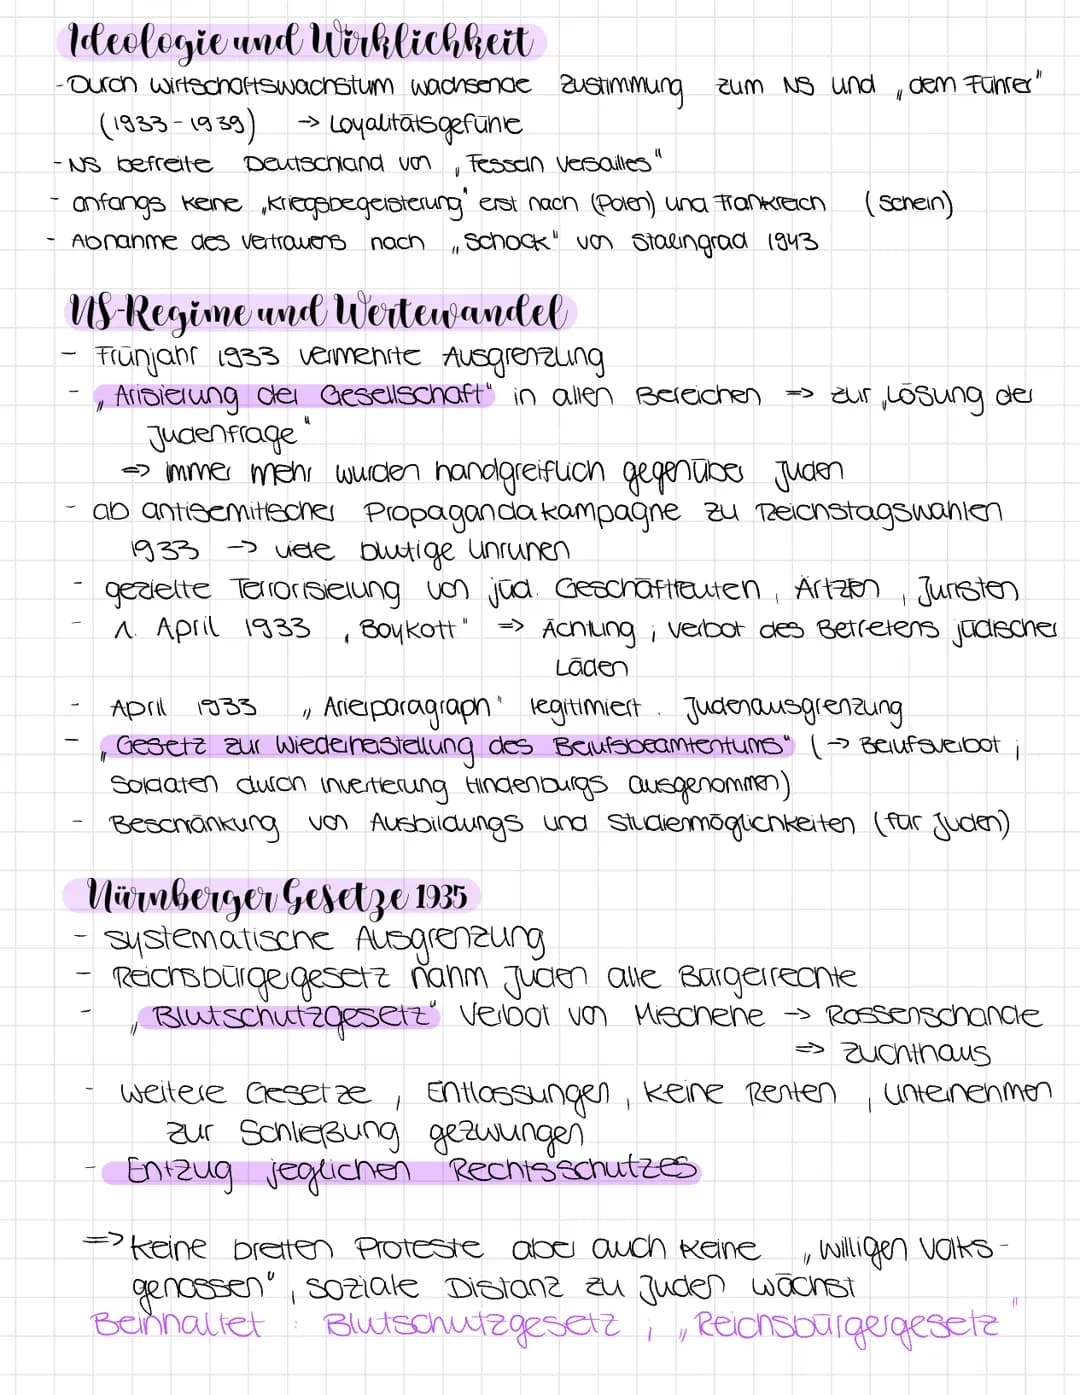 Ideologie und Wirklichkeit
- Durch Wirtschaftswachstum wachsende Zustimmung zum NS und „dem Führer"
(1933-1939) → Loyalitätsgefühle
- NS befreite Deutschland von „Fesseln Versailles"
- anfangs keine „Kriegsbegeisterung" erst nach (Polen) und Frankreich (Schein)
- Abnahme des Vertrauens nach „Schock" von Stalingrad 1943
NS-Regime und Wertewandel
- Frühjahr 1933 vermehrte Ausgrenzung
- „Arisierung der Gesellschaft" in allen Bereichen => zur „Lösung der
Judenfrage"
=> immer mehr wurden handgreiflich gegenüber Juden
- ab antisemitischer Propagandakampagne zu Reichstagswahlen
1933 → viele blutige Unruhen
- gezielte Terrorisierung von jüd. Geschäftleuten, Ärtzen, Juristen
- 1. April 1933 „Boykott" => Ächtung; Verbot des Betretens jüdischer
Läden
- April 1933 „Arierparagraph" legitimiert. Judenausgrenzung
- „Gesetz zur Wiederherstellung des Berufsbeamtentums" (→ Berufsverbot;
Soldaten durch Invertierung Hindenburgs ausgenommen)
- Beschränkung von Ausbildungs und Studienmöglichkeiten (für Juden)
Nürnberger Gesetze 1935
- systematische Ausgrenzung
- Reichsbürgergesetz nahm Juden alle Bürgerrechte
- „Blutschutzgesetz" Verbot von Mischehe → Rassenschande
=> Zuchthaus
- weitere Gesetze, Entlassungen, keine Renten, Unternehmen
zur Schließung gezwungen
- Entzug jeglichen Rechtsschutzes
=> keine breiten Proteste aber auch keine „willigen Volks-
genossen", soziale Distanz zu Juden wächst
Beinhaltet: Blutschutzgesetz; „Reichsbürgergesetz"